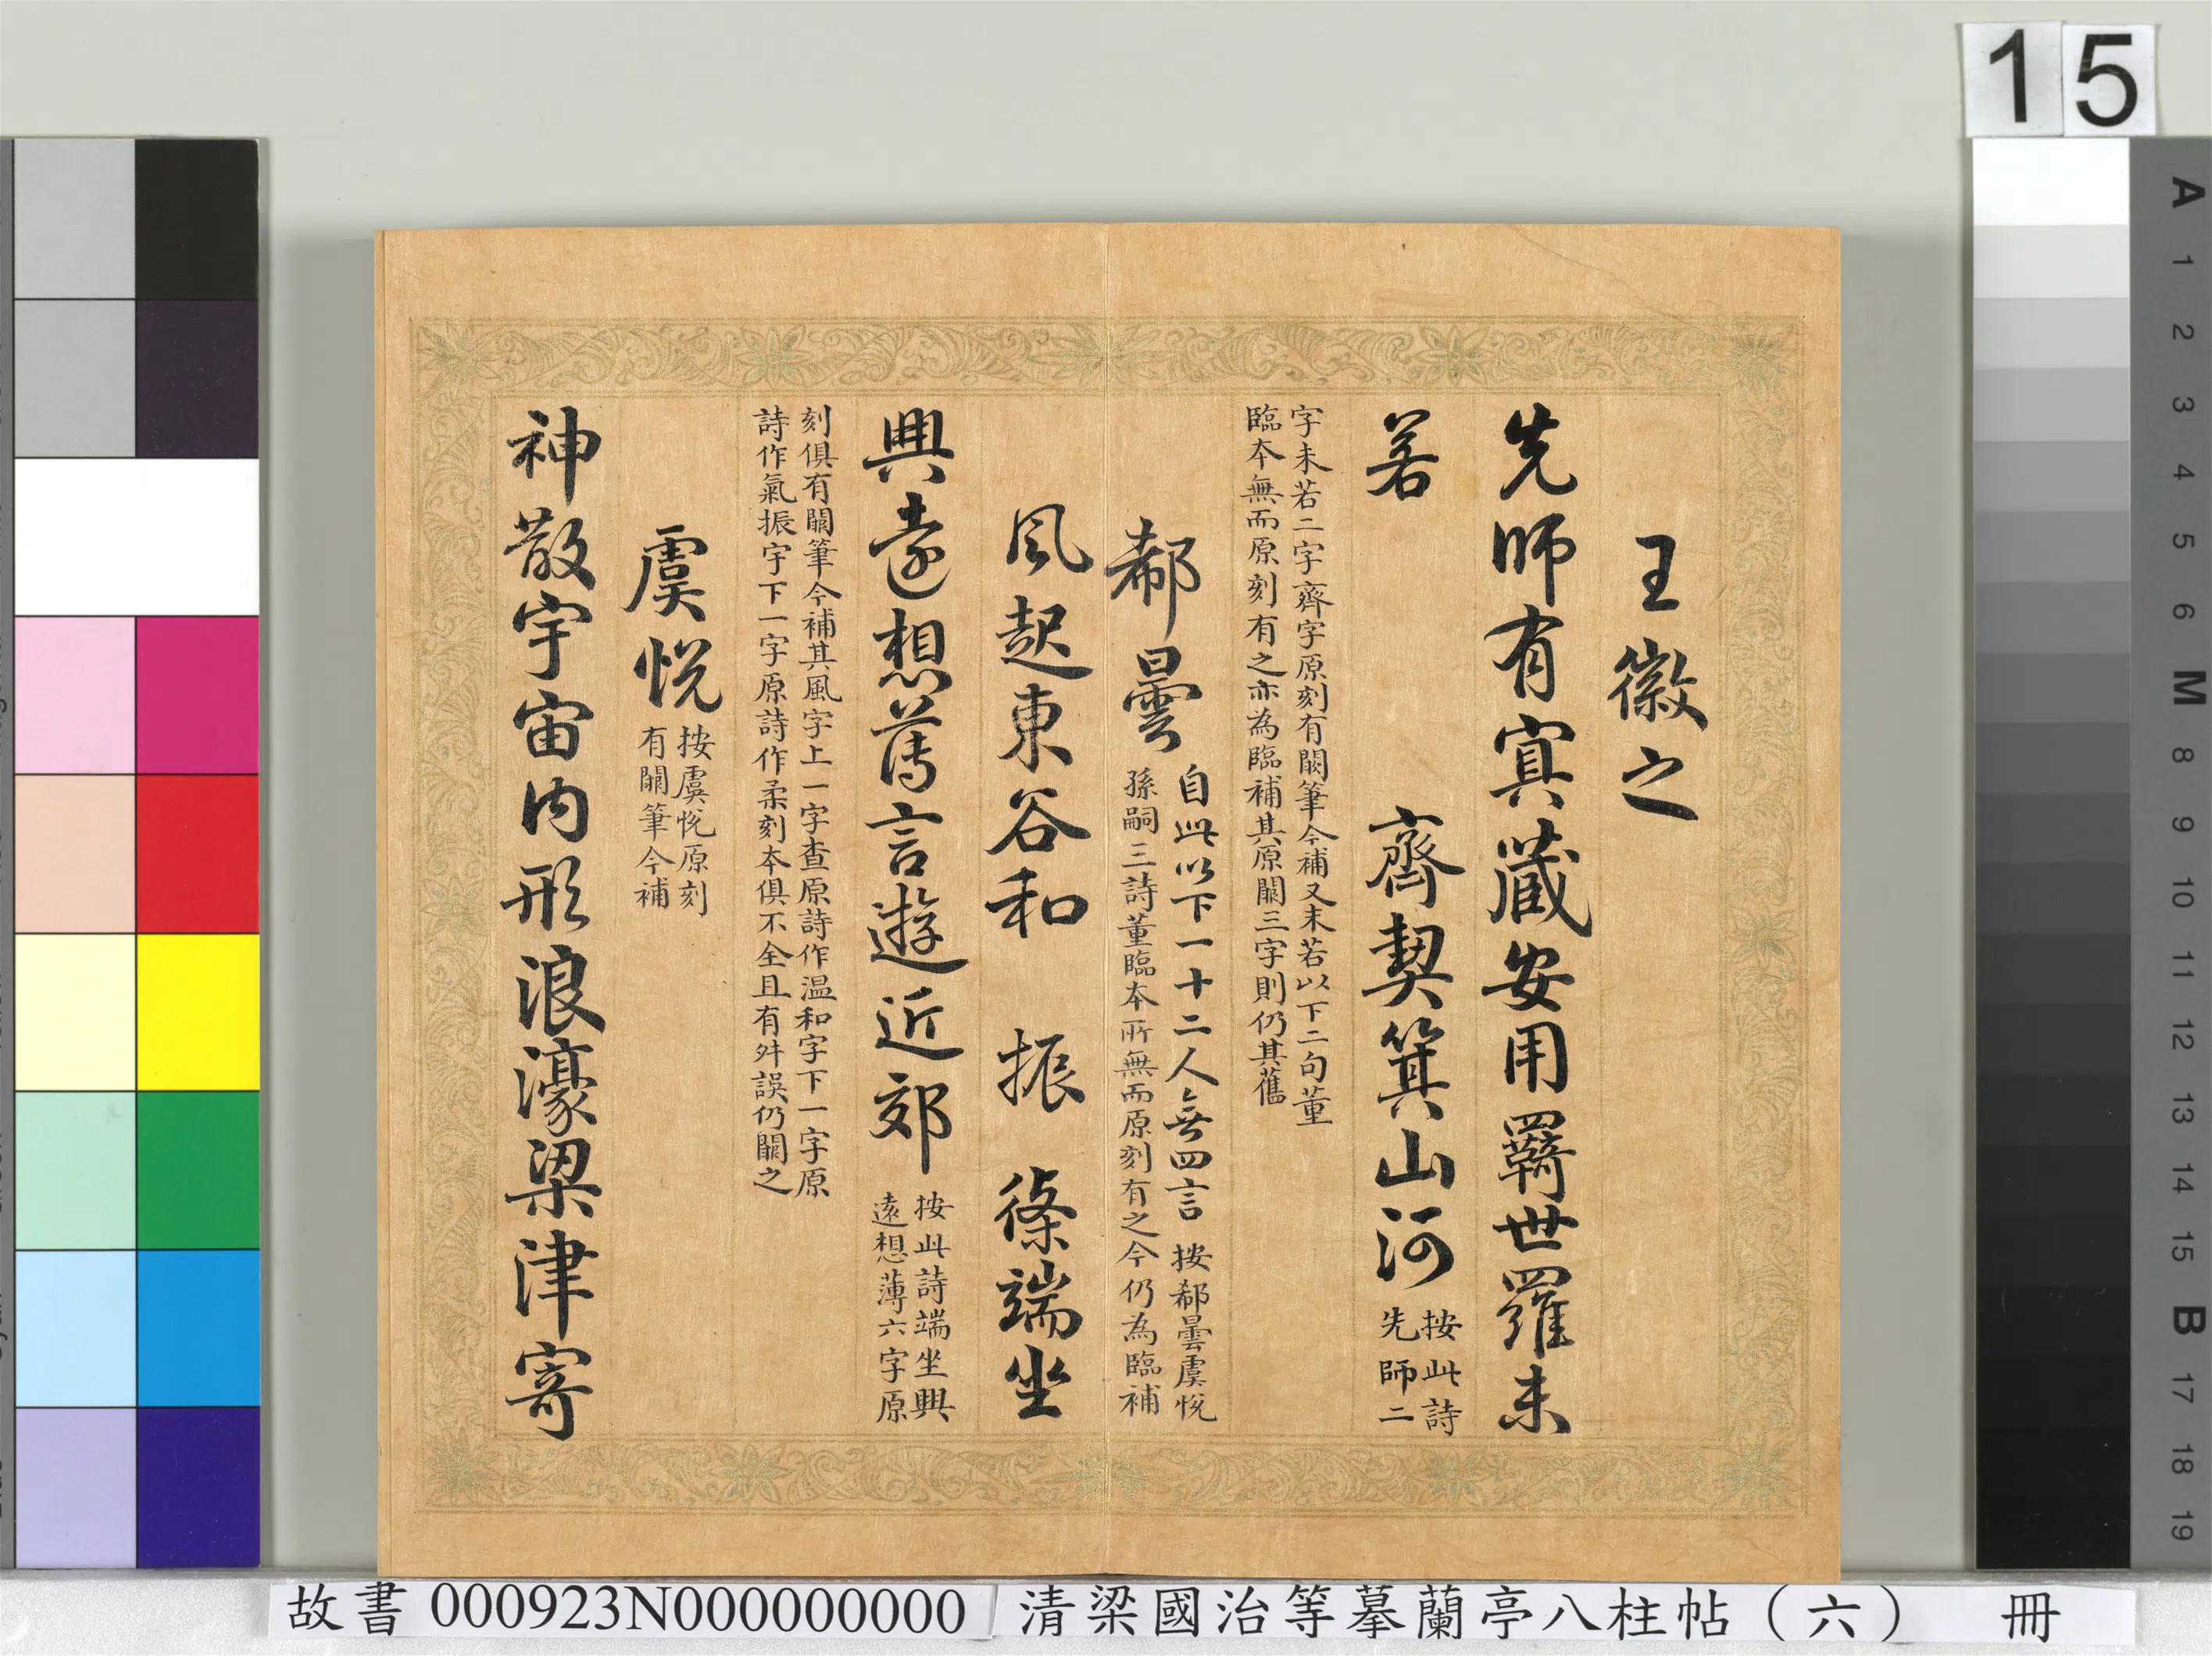 王徽之
先師有寘藏安用羇世羅未
若　齊契箕山河按此詩
先師二
字未若二字齊字原刻有闕筆今補又未若以下二句董
臨本無而原刻有之亦為臨補其原闕三字則仍其舊
郗曇自此以下一十二人無四言　按郗曇虞悅
孫嗣三詩董臨本所無而原刻有之今仍為臨補
風起東谷和　振　條端坐
興遠想薄言遊近郊按此詩端坐興
遠想薄六字原
刻俱有闕筆今補其風字上一字查原詩作温和字下一字原
詩作氣振字下一字原詩作柔刻本俱不全且有舛誤仍闕之
虞悅按虞悅原刻
有闕筆今補
神散宇宙内形浪濠梁津寄
15
A
1
2
3
4
5
6
M
8
9
10
11
12
13
14
15
B
17
18
19
故書 000923N000000000
清梁國治等摹蘭亭八柱帖（六）　冊